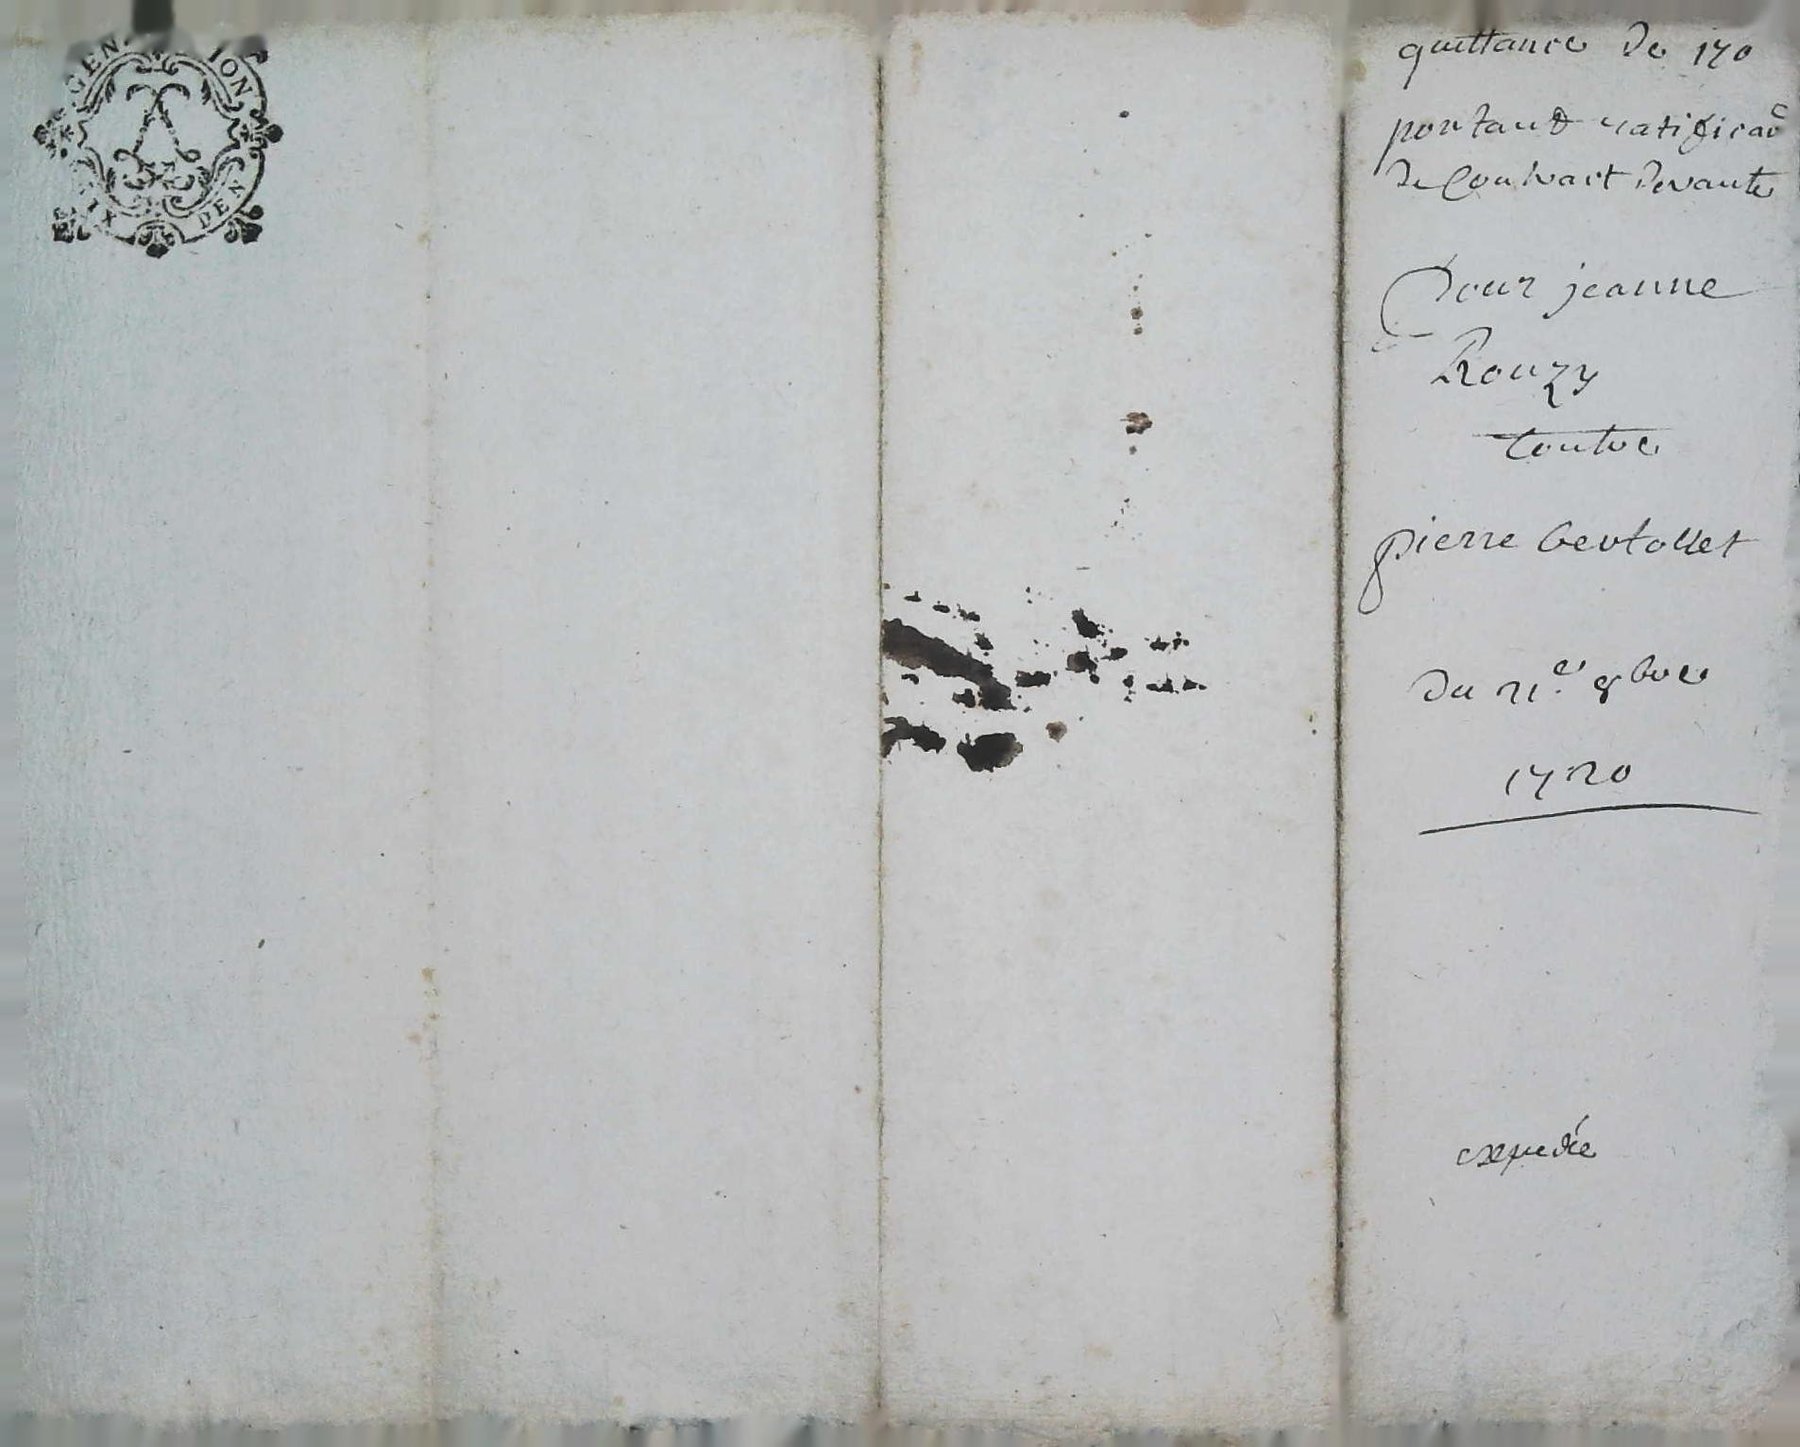 GEN ION
SIX DEN
quittance de 170
portant ratificaõ
de Contract devante
Pour jeanne
Rouzy
Contre
pierre bertollet
Du 21.e 8bre
1720
expediée